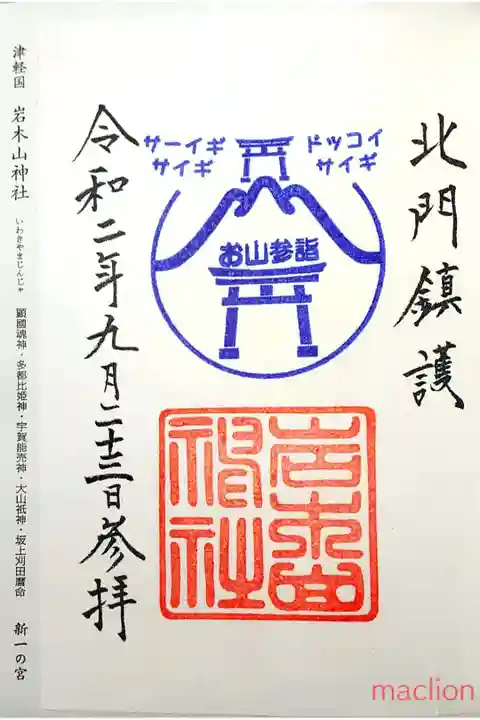 北門鎮護
サーイギ
サイギ
ドッコイ
サイギ
お山参詣
岩木山
神社
令和二年九月二十三日参拝
津軽国 岩木山神社 いわきやまじんじゃ 顕國魂神・多都比姫神・宇賀能売神・大山祇神・坂上刈田麿命 新一の宮
maclion